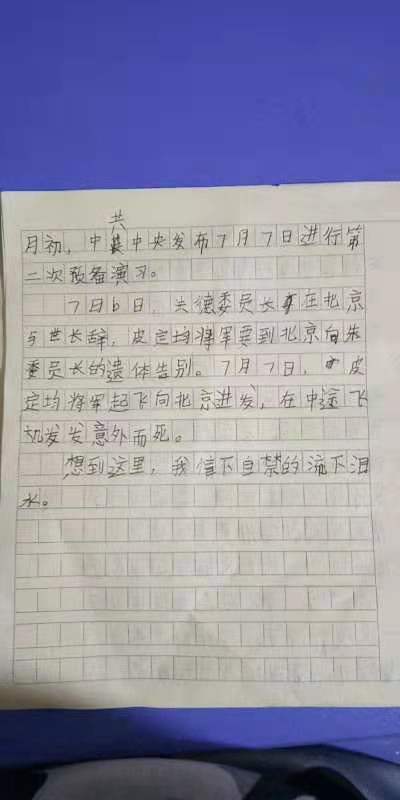 共
月初，中央发布7月7日进行第
二次预备演习。
7日6日，朱德委员长在北京
与世长辞，皮定均将军要到北京向朱
委员长的遗体告别。7月7日，皮
定均将军起飞向北京进发，在中途飞
机发发意外而死。
想到这里，我信下自禁的流下泪
水。